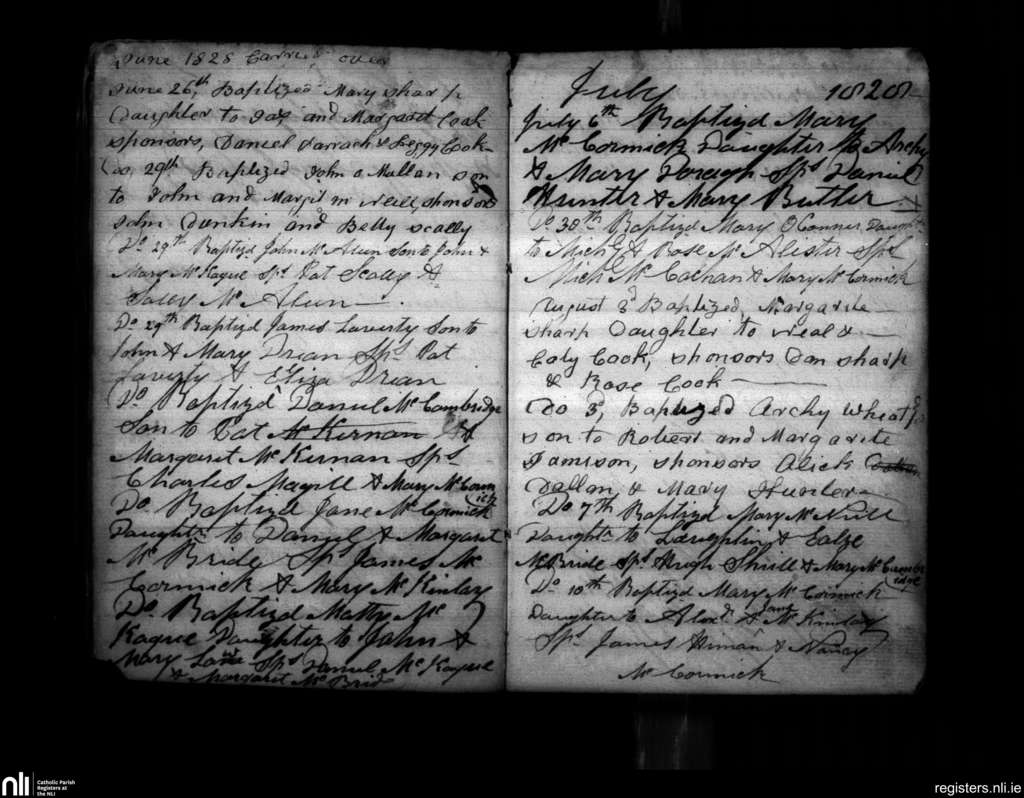 June 1828 Carried over
June 26th, Baptized Mary Sharp
Daughter to Jas, and Margaret Cook
sponsors, Daniel Darrach & Peggy Cook
Do, 29th Baptized John o Mullan son
to John and Margt mc Neill, sponsors
John Dunkin and Betty Scally
Do 29th Baptizd John Mc Aleen Son to John &
Mary Mc Kague Sps Pat Scally &
Mc Aleen
Do 29th Baptizd James Laverty Son to
John & Mary Drean Sps Pat
Laverty & Eliza Drean
Do Baptizd Daniel Mc Cambridge
Son to Pat Mc Kernan &
Margaret Mc Kernan Sps
Charles Magill & Mary Mc Corm
ick
Do Baptizd Jane Mc Cormick
Daughtr to Daniel & Margaret
Mc Bride Sps James Mc
Cormick & Mary Mc Kinlay
Do Baptizd Matty Mc
Kague Daughter to John &
Mary Sps Daniel Mc Kague
& Margaret Mc Bride
July 1828
July 6th Baptizd Mary
Mc Cormick Daughter to Archy
& Mary Daragh Sps Daniel
Hunter & Mary Butler
Do 30th Baptizd Mary O Connor Daught
to Michl & Rose Mc Alister Sps
Michl Mc Cachan & Mary Mc Cormick
August 3d Baptized, Margarite
Sharp Daughter to Neal &
Caty Cook, sponsors Dan Sharp
& Rose Cook
Do 3d, Baptized Archy
son to Robert and Margarite
Jamison, sponsors Alick
Dallan & Mary Hunter
Do 7th Baptizd Mary Mc Neill
Daughtr to Laughlin &
McBride Sps Hugh Shiell & Mary Mc Cambr
idge
Do 10th Baptizd Mary Mc Cormick
Daughter to Alexr & Jane Mc Kinlay
Sps James Himan & Nancy
Mc Cormick
nli
Catholic Parish
Registers at
the NLI
registers.nli.ie